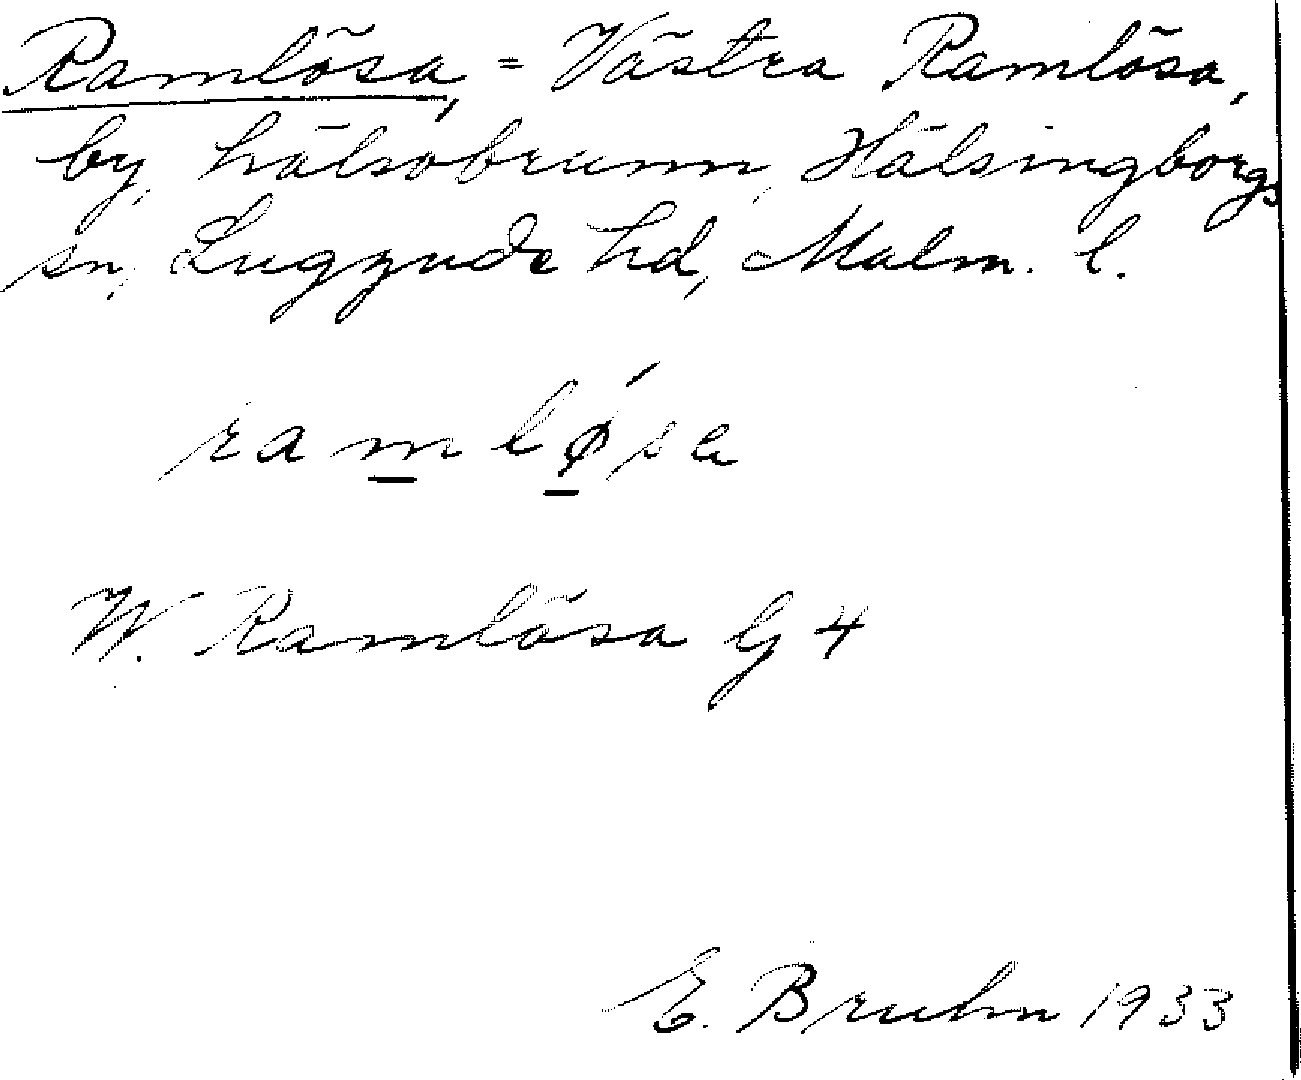 Ramlösa, = Västra Ramlösa,
by, hälsobrunn, Hälsingborgs
sn, Luggude hd, Malm. l.
ramlø´sa
W. Ramlösa G 4
E. Bruhn 1933